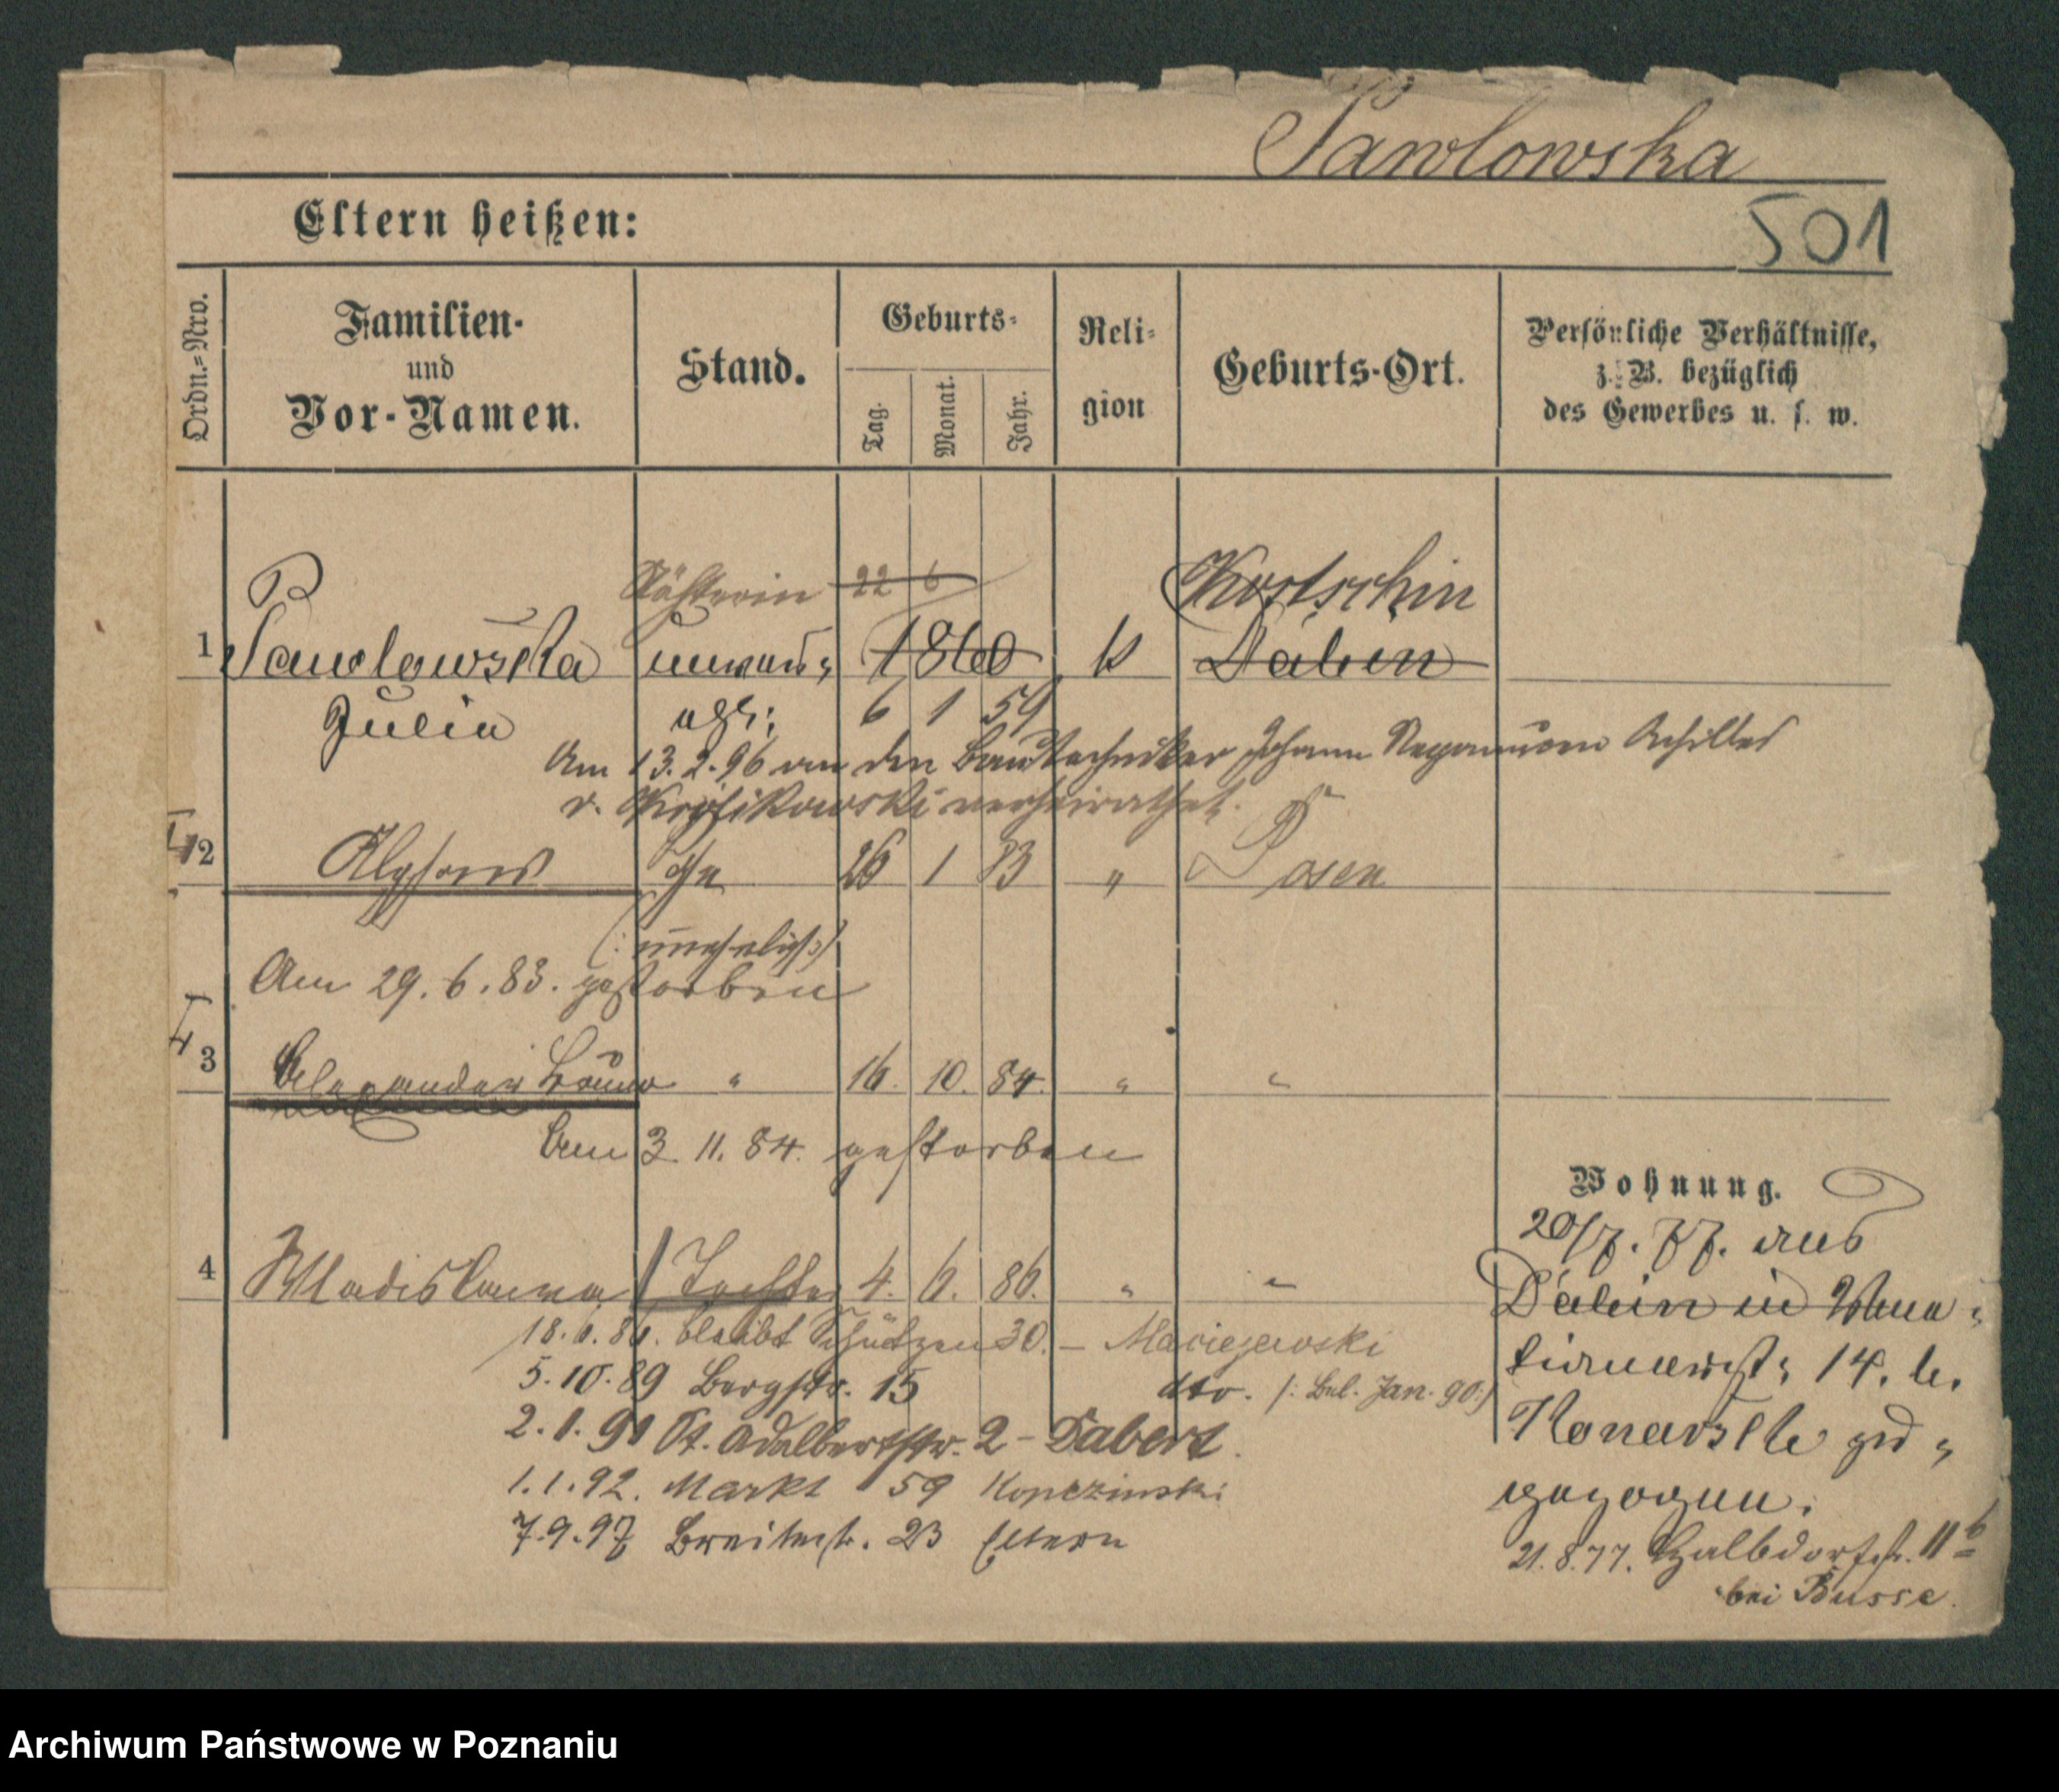 Pawlowska
501
Eltern heißen:
Ordn.=Nro.
Familien-
und
Vor-Namen.
Stand.
Geburts-
Tag.
Monat.
Jahr.
Reli-
gion
Geburts-Ort.
Persönliche Verhältnisse,
z. B. bezüglich
des Gewerbes u. s. w.
Näherin 22 6 Kostschin
1 Pawlowska unver- 1860 k Dabin
Julia 6 1 59
Am 13.2.96 an den Bautechniker Johann Achilles
v. verheirathet.
2 Alphons 26 1 83 " Posen
(: unehelich :)
Am 29.6.83. gestorben
3 Alexander Bruno " 16. 10. 84. " "
Am 3 11. 84. gestorben
4 Wladislawa Tochter 4. 6. 86. " "
18.6.86. bleibt Schützen 30. - Maciejewski
5.10.89 Bergstr. 15 dto. /: Bel. Jan. 90 :/
2.1.91 St. Adalbertstr. 2 - Dabert.
1.1.92. Markt 59 Kopczinski
7.9.97 Breitestr. 23 Eltern
Wohnung.
20/7. 77. aus
Dabin in
14. b.
zu-
gezogen.
21.8.77. Halbdorfstr. 11b
bei Busse.
Archiwum Państwowe w Poznaniu